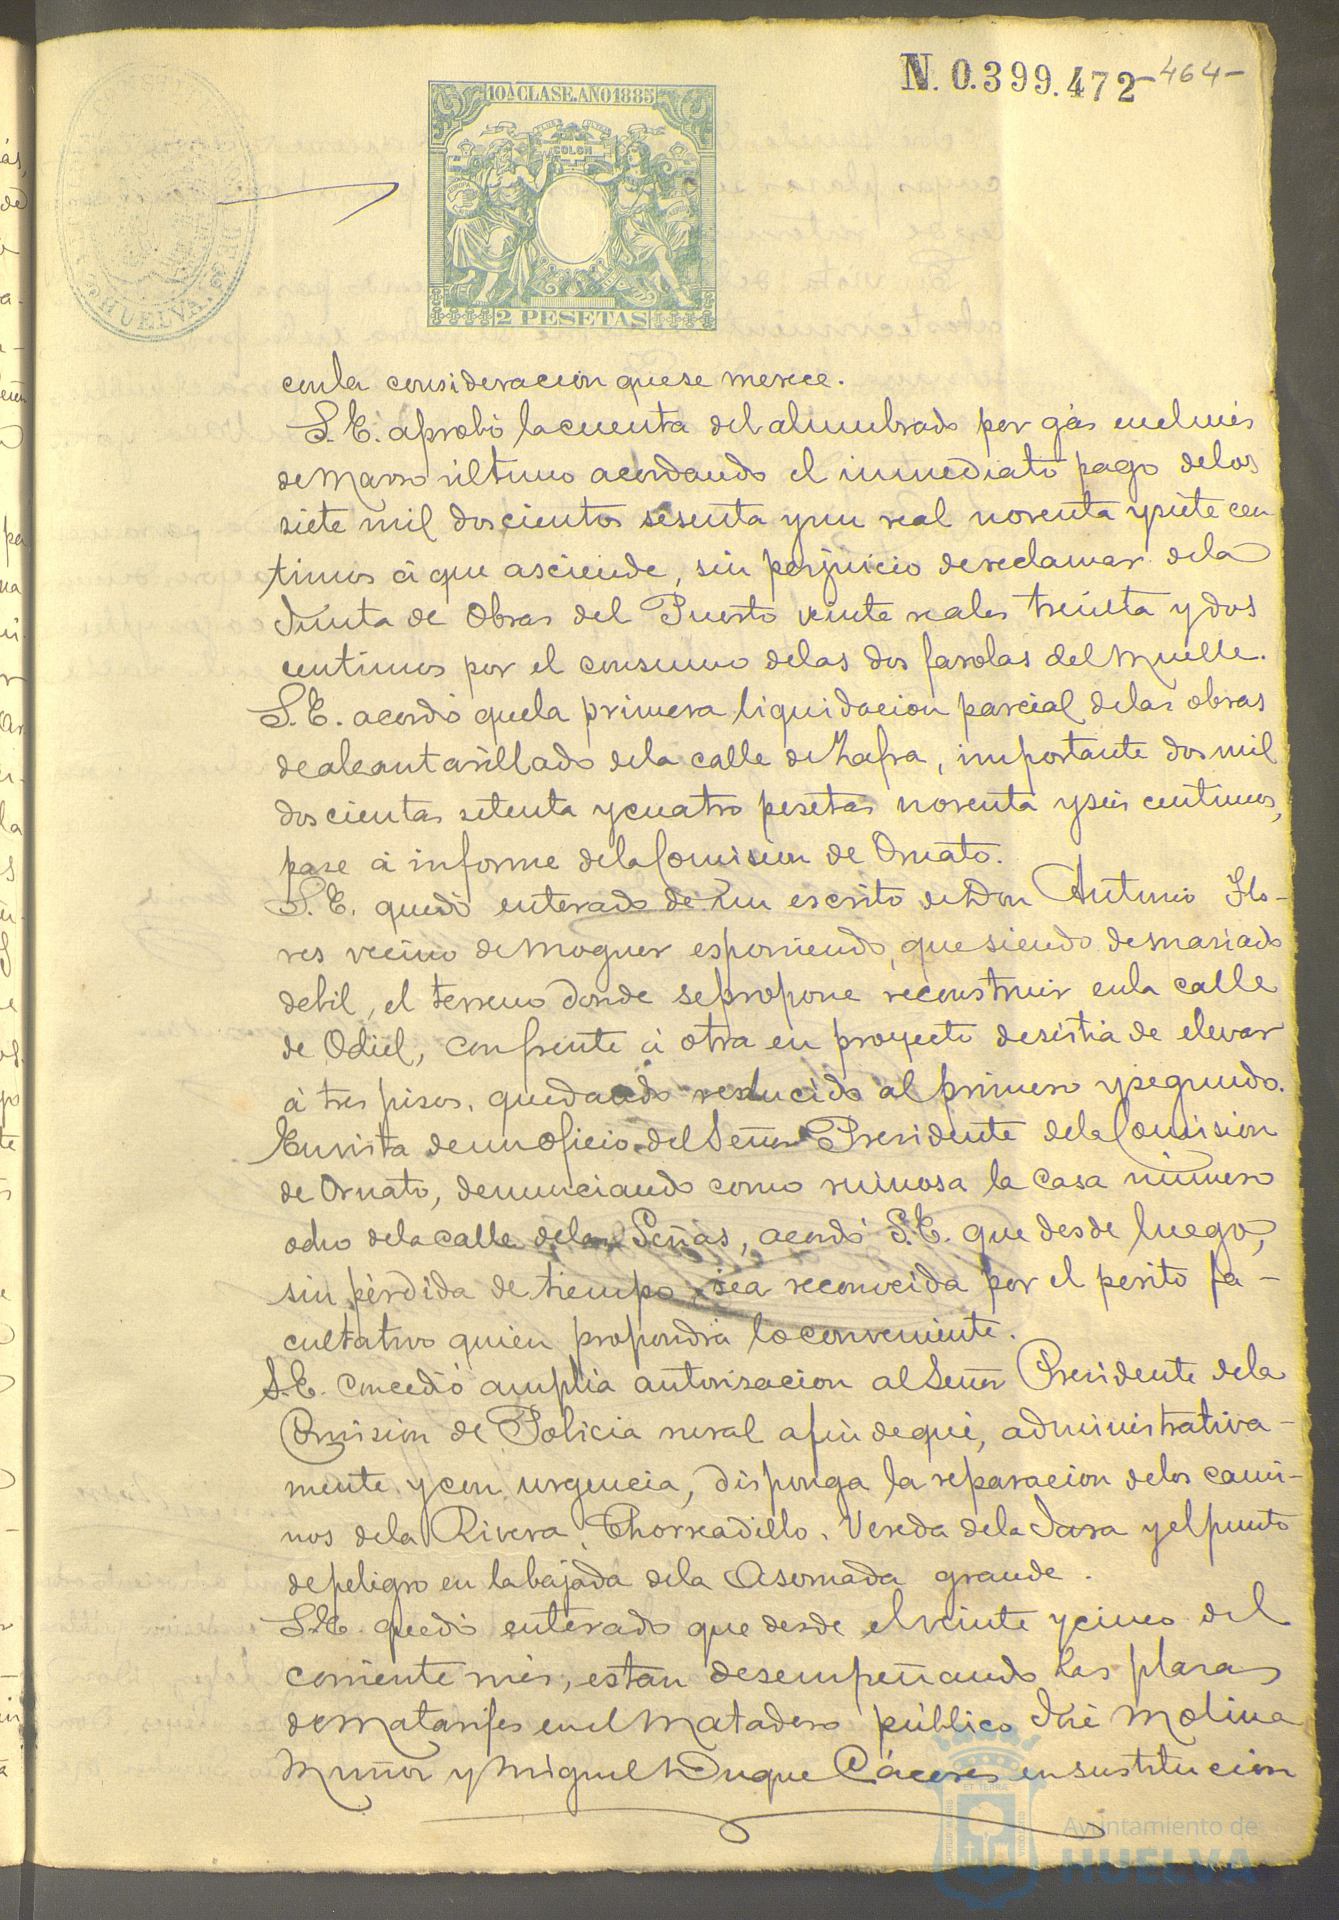 N. 0.399.472 -464-
10ª CLASE. AÑO 1885
COLON
2 PESETAS
HUELVA
conla consideracion quese merece.
S. E. aprobó lacuenta del alumbrado por gás enelmes
de Marzo último acordando el inmediato pago delos
siete mil doscientos sesenta yun real noventa ysiete cen
timos á que asciende, sin perjuicio dereclamar dela
Junta de Obras del Puerto veinte reales treinta y dos
centimos por el consumo delas dos farolas del Muelle.
S. E. acordó quela primera liquidacion parcial delas obras
dealcantarillado dela calle de Zafra, importante dos mil
doscientas setenta ycuatro pesetas noventa yseis centimos,
pase á informe dela Comision de Ornato.
S. E. quedó enterado de un escrito de Don Antonio Flo-
res vecino de Moguer esponiendo, que siendo demasiado
debil, el terreno donde sepropone reconstruir enla calle
de Odiel, confrente á otra en proyecto desistia de elevar
á tres pisos, quedando reducido al primero ysegundo.
Envista deunoficio del Señor Presidente dela Comision
de Ornato, denunciando como ruinosa la casa número
ocho dela calle delas Peñas, acordó S. E. que desde luego,
sin pérdida de tiempo, sea reconocida por el perito fa-
cultativo quien propondrá loconveniente.
S. E. concedió amplia autorizacion al Señor Presidente dela
Comision de Policia rural afin deque, administrativa-
mente ycon urgencia, disponga la reparacion delos cami-
nos dela Rivera, Chorreadillo, Vereda dela Jara yelpunto
depeligro en labajada dela Asomada grande.
S. E. quedó enterado que desde elveinte ycinco del
corriente mes, estan desempeñando las plazas
de Matarifes enel Matadero público José Molina
Muñoz y Miguel Duque Cáceres en sustitucion
Ayuntamiento de
HUELVA